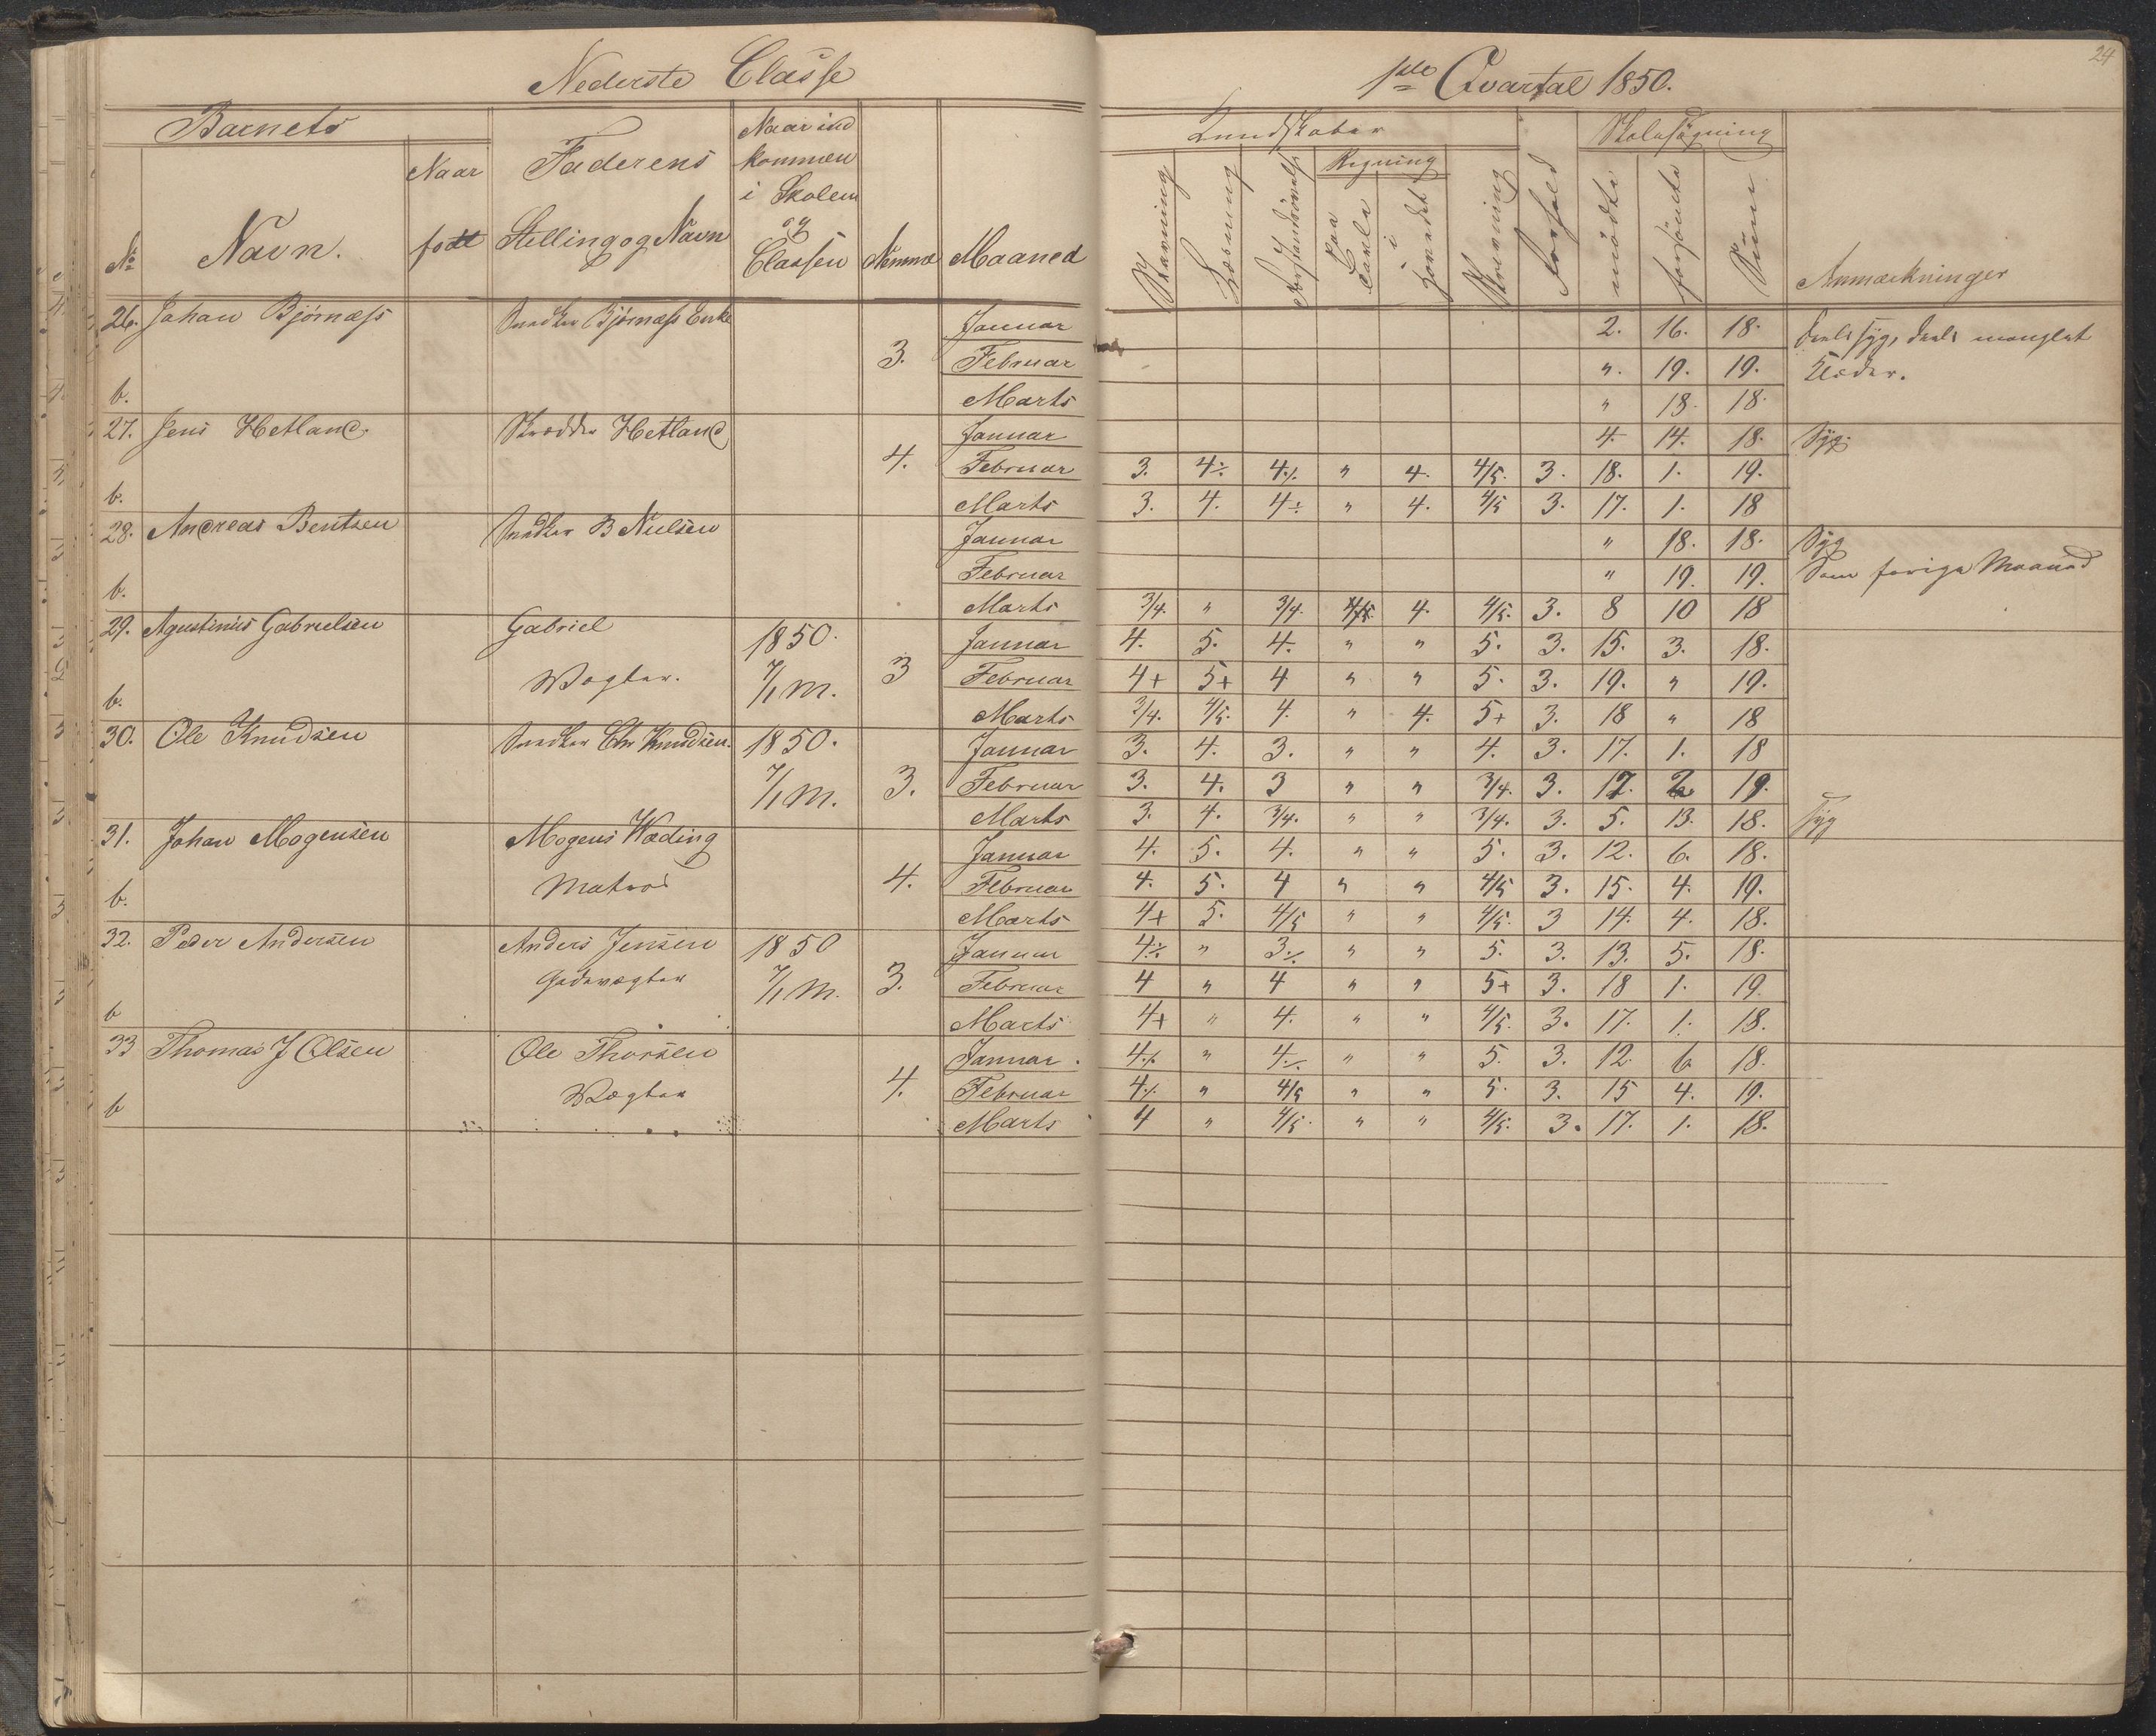 Nederste Classe
Barnets
No Navn. Naar født Faderens Stilling og Navn Naar ind kommen i Skolen og Classen Nemme Maaned
26. Johan Bjørnæss Snedker Bjørnæss Enke 3. Januar
Februar
b. Marts
27. Jens Hetland Skrædder Hetland 4. Januar
Februar
b. Marts
28. Andreas Bentsen Snedker B Nielsen Januar
Februar
b. Marts
29. Agustinius Gabrielsen Gabriel 1850. Januar
Vægter. 7/1 M. 3 Februar
b. Marts
30. Ole Knudsen Snedker Chr Knudsen. 1850. Januar
7/1 M. 3. Februar
Marts
31. Johan Mogensen Mogens Wæding Januar
Matros 4. Februar
b. Marts
32. Peder Andersen Anders Jensen 1850 Januar
Gadevægter 7/1 M. 3. Februar
b Marts
33 Thomas J Olsen Ole Thorsen Januar
Vægter 4. Februar
b Marts
24
1ste Qvartal 1850.
Kundskaber Skolesøgning
Stavning Læsning Forstandsøvelse Regning paa Tavle i Hovedet Skrivning Forhold mødte forsømte Sum Anmærkninger
2. 16. 18. Deels syg, deels manglet
" 19. 19. Klæder.
" 18. 18.
4. 14. 18. Syg.
3. 4÷ 4÷ " 4. 4/5. 3. 18. 1. 19.
3. 4. 4÷ " 4. 4/5 3. 17. 1. 18
" 18. 18. Syg
" 19. 19. Som forrige Maaned
3/4. " 3/4. 4. 4/5. 3. 8 10 18
4. 5. 4. " " 5. 3. 15. 3. 18.
4+ 5+ 4 " " 5. 3. 19. " 19.
3/4. 4/5. 4. " 4. 5+ 3. 18 " 18
3. 4. 3. " " 4. 3. 17. 1. 18
3. 4. 3 " " 3/4. 3. 17. 2. 19.
3. 4. 3/4. " " 3/4. 3. 5. 13. 18. Syg
4. 5. 4. " " 5. 3. 12. 6. 18.
4. 5. 4 " " 4/5 3. 15. 4. 19.
4+ 5. 4/5 " " 4/5. 3 14. 4. 18.
4÷ " 3÷ " " 5. 3. 13. 5. 18.
4 " 4 " " 5+ 3. 18 1. 19.
4+ " 4. " " 4/5. 3. 17. 1. 18.
4÷ " 4÷ " " 5. 3. 12. 6 18.
4÷ " 4/5 " " 5. 3. 15 4. 19.
4 " 4/5. " " 4/5. 3. 17. 1. 18.